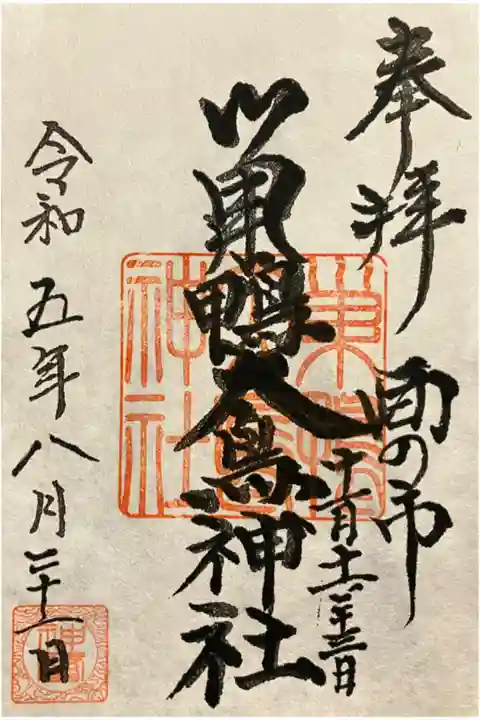 奉拝
酉の市
十一月十一日
二十三日
巣鴨大鳥神社
令和五年八月三十一日
巣鴨
大鳥
神社